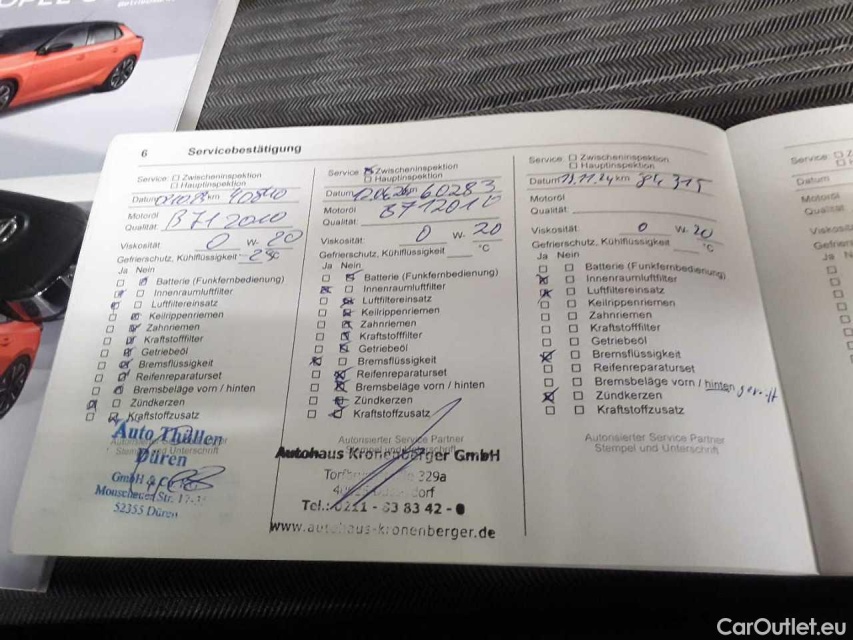 6 Servicebestätigung
Service: ☐ Zwischeninspektion
☐ Hauptinspektion
Datum km 40840
Motoröl B71 2010
Qualität:
Viskosität: 0 W- 20
Gefrierschutz, Kühlflüssigkeit °C
Ja Nein
☐ ☒ Batterie (Funkfernbedienung)
☒ ☐ Innenraumluftfilter
☒ ☐ Luftfiltereinsatz
☐ ☒ Keilrippenriemen
☐ ☒ Zahnriemen
☐ ☒ Kraftstofffilter
☐ ☒ Getriebeöl
☐ ☒ Bremsflüssigkeit
☐ ☒ Reifenreparaturset
☐ ☒ Bremsbeläge vorn / hinten
☒ ☐ Zündkerzen
☐ ☒ Kraftstoffzusatz
Auto Thüllen
Düren
Stempel und Unterschrift
GmbH & C
Monschauer Str.
52355 Düren
Service ☒ Zwischeninspektion
☐ Hauptinspektion
Datum km 60283
Motoröl B71201
Qualität:
Viskosität: 0 W- 20
Gefrierschutz, Kühlflüssigkeit °C
Ja Nein
☐ ☒ Batterie (Funkfernbedienung)
☒ ☐ Innenraumluftfilter
☐ ☒ Luftfiltereinsatz
☐ ☒ Keilrippenriemen
☐ ☒ Zahnriemen
☐ ☒ Kraftstofffilter
☐ ☒ Getriebeöl
☒ ☐ Bremsflüssigkeit
☐ ☒ Reifenreparaturset
☐ ☒ Bremsbeläge vorn / hinten
☐ ☒ Zündkerzen
☐ ☒ Kraftstoffzusatz
Autorisierter Service Partner
Autohaus Kronenberger GmbH
Stempel und Unterschrift
329a
dorf
Tel.: 0211 - 83 83 42 - 0
www.autohaus-kronenberger.de
Service: ☐ Zwischeninspektion
☐ Hauptinspektion
Datum 13.11.24 km 84 315
Motoröl
Qualität:
Viskosität: 0 W- 20
Gefrierschutz, Kühlflüssigkeit °C
Ja Nein
☐ ☐ Batterie (Funkfernbedienung)
☒ ☐ Innenraumluftfilter
☒ ☐ Luftfiltereinsatz
☐ ☐ Keilrippenriemen
☐ ☐ Zahnriemen
☐ ☐ Kraftstofffilter
☐ ☐ Getriebeöl
☒ ☐ Bremsflüssigkeit
☐ ☐ Reifenreparaturset
☐ ☐ Bremsbeläge vorn / hinten
☒ ☐ Zündkerzen
☐ ☐ Kraftstoffzusatz
Autorisierter Service Partner
Stempel und Unterschrift
Service: ☐
Datum
Motoröl
Qualität:
CarOutlet.eu